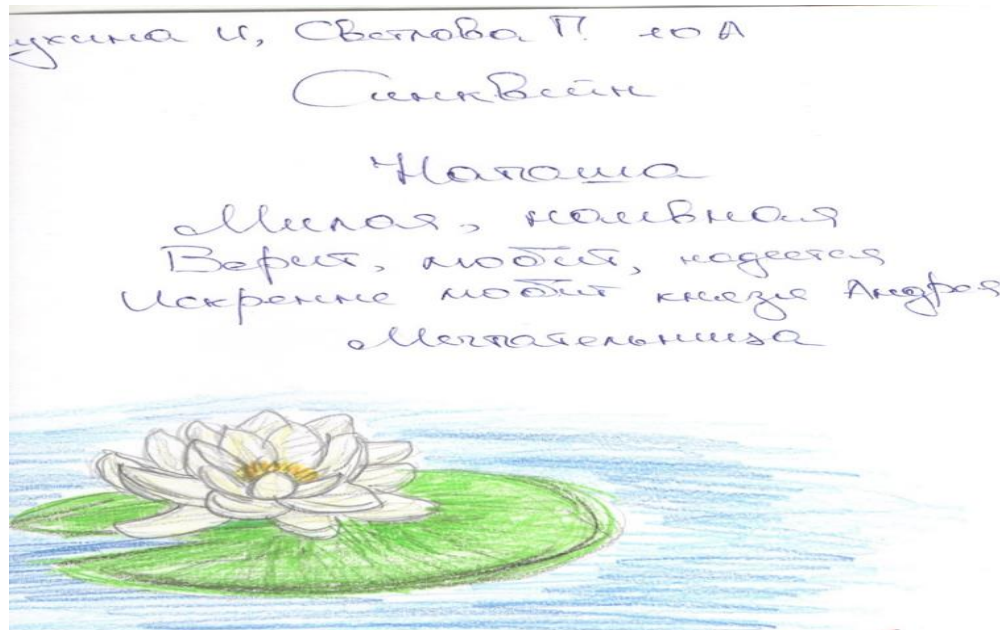 И, Светлова П. 10 А
Синквейн
Наташа
Милая, наивная
Верит, любит, надеется
Искренне любит князя Андрея
Мечтательница